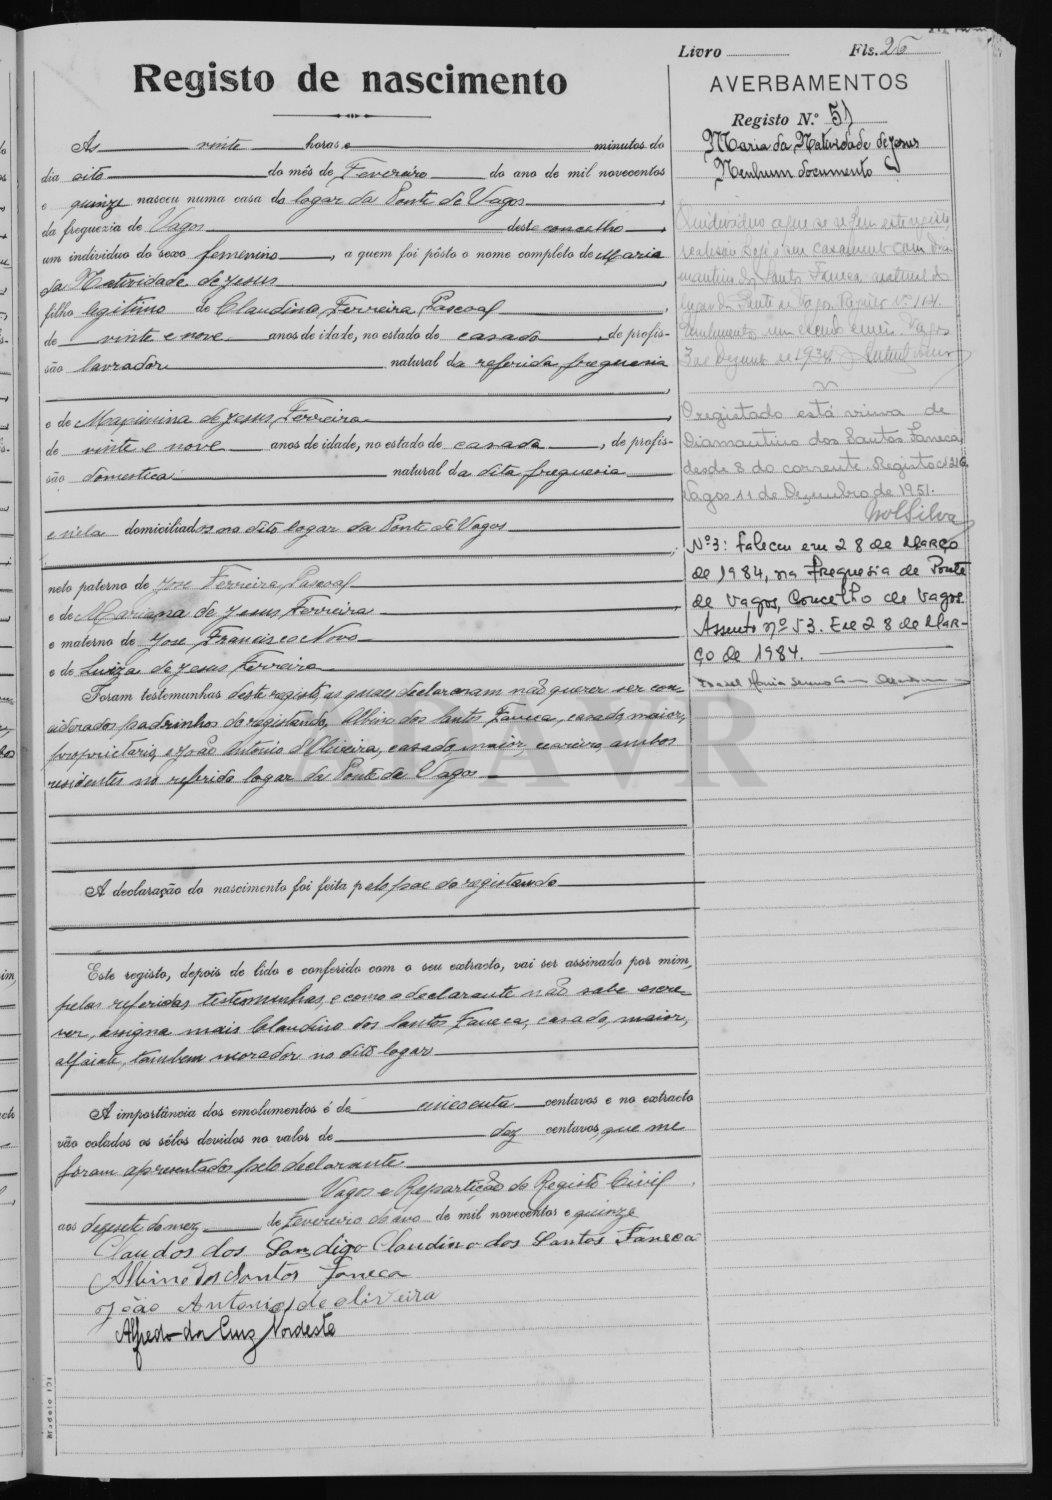 Livro Fls. 26
Registo de nascimento
AVERBAMENTOS
Registo N.º 51
Maria da Natividade de Jesus
Nenhum documento
Às vinte horas e minutos do
dia oito do mês de Fevereiro do ano de mil novecentos
e quinze nasceu numa casa do logar da Ponte de Vagos
da freguezia de Vagos deste concelho
um individuo do sexo femenino, a quem foi pôsto o nome completo de Maria
da Natividade de Jesus
filho legitimo de Claudino Ferreira Pascoal
de vinte e nove anos de idade, no estado de casado, de profis-
são lavrador natural da referida freguesia
e de Maximina de Jesus Ferreira
de vinte e nove anos de idade, no estado de casada, de profis-
são domestica natural da dita freguesia
e nela domiciliados no dito logar da Ponte de Vagos
neto paterno de Jose Ferreira Pascoal
e de Mariana de Jesus Ferreira
e materno de Jose Francisco Novo
e de Luiza de Jesus Ferreira
Foram testemunhas deste registo, as quaes declararam não querer ser con-
siderados padrinhos do registando, Albino dos Santos Faneca, casado, maior,
proprietario, e João Antonio d'Oliveira, casado, maior, ambos
residentes no referido logar da Ponte de Vagos
A declaração do nascimento foi feita pelo pae do registando
Este registo, depois de lido e conferido com o seu extracto, vai ser assinado por mim,
pelas referidas testemunhas, e como o declarante não sabe escre-
ver, assigna mais Claudino dos Santos Faneca, casado, maior,
alfaiate, tambem morador no dito logar
A importância dos emolumentos é de cincoenta centavos e no extracto
vão colados os sêlos devidos no valor de dez centavos, que me
foram apresentados pelo declarante
Vagos e Repartição do Registo Civil
aos dezesete do mez de Fevereiro do ano de mil novecentos e quinze
Claudos dos San digo Claudino dos Santos Faneca
Albino dos Santos Faneca
João Antonio de oliveira
Alfredo da Cruz Nordeste
O individuo a que se refere este registo,
realisou hoje o seu casamento com Dia-
mantino dos Santos Faneca natural do
logar da Ponte de Vagos. Registo Nº 104.
Emolumento um escudo Vagos
3 de Dezembro de 1934
O registado está viuva de
Diamantino dos Santos Faneca,
desde 8 do corrente. Registo nº 216.
Vagos 11 de Dezembro de 1951.
Silva
Nº 3: Faleceu em 28 de Março
de 1984, na Freguesia de Ponte
de Vagos, Concelho de Vagos.
Assento nº 53. Em 28 de Mar-
ço de 1984.
ADAVR
Modelo 131